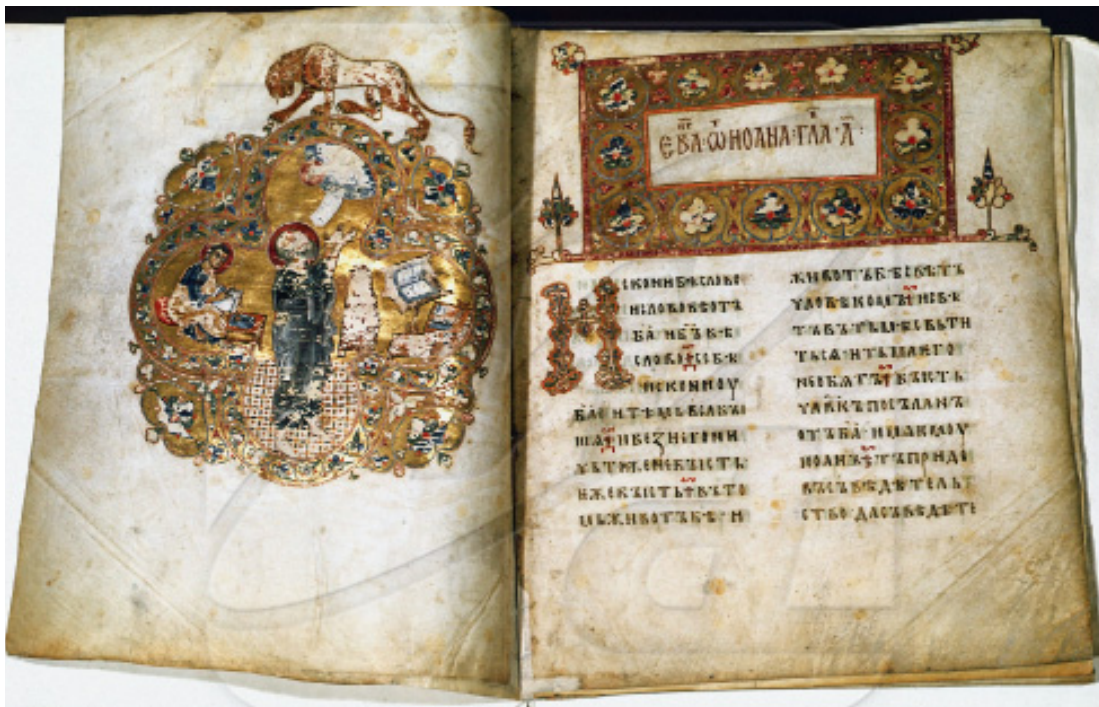 ЄВА·Ѡ ИОАНА·ГЛА·А҃:
ИСКОНИ БѢ СЛОВО
И СЛОВО БѢ ОТЪ
БА҃ И БЪ҃ БѢ
СЛОВО СЕ БѢ
ИСКОНИ ОУ
БА҃ И ТѢМЬ ВЬСА БЫ
ША И БЕЖНЕГО НИ
ЧЬТОЖЕ НЕ БЫСТЬ
ѤЖЕ БЫСТЬ ВЪ ТО
МЬ ЖИВОТЪ БѢ И
ЖИВОТЪ БѢ СВѢТЪ
ЧЛОВѢКОМЪ И СВѢ
ТЪ ВЪ ТЬМѢ СВЬТИ
ТЬСѦ И ТЬМА ѤГО
НЕ ОБѦТЪ БЫСТЬ
ЧЛ҃ВКЪ ПОСЪЛАНЪ
ОТЪ БА҃ ИМѦ ѤМОУ
ИОАНЪ ТЪ ПРИДЕ
ВЪ СЪВѢДѢТЕЛЬ
СТВО ДА СЪВѢДѢТЕ